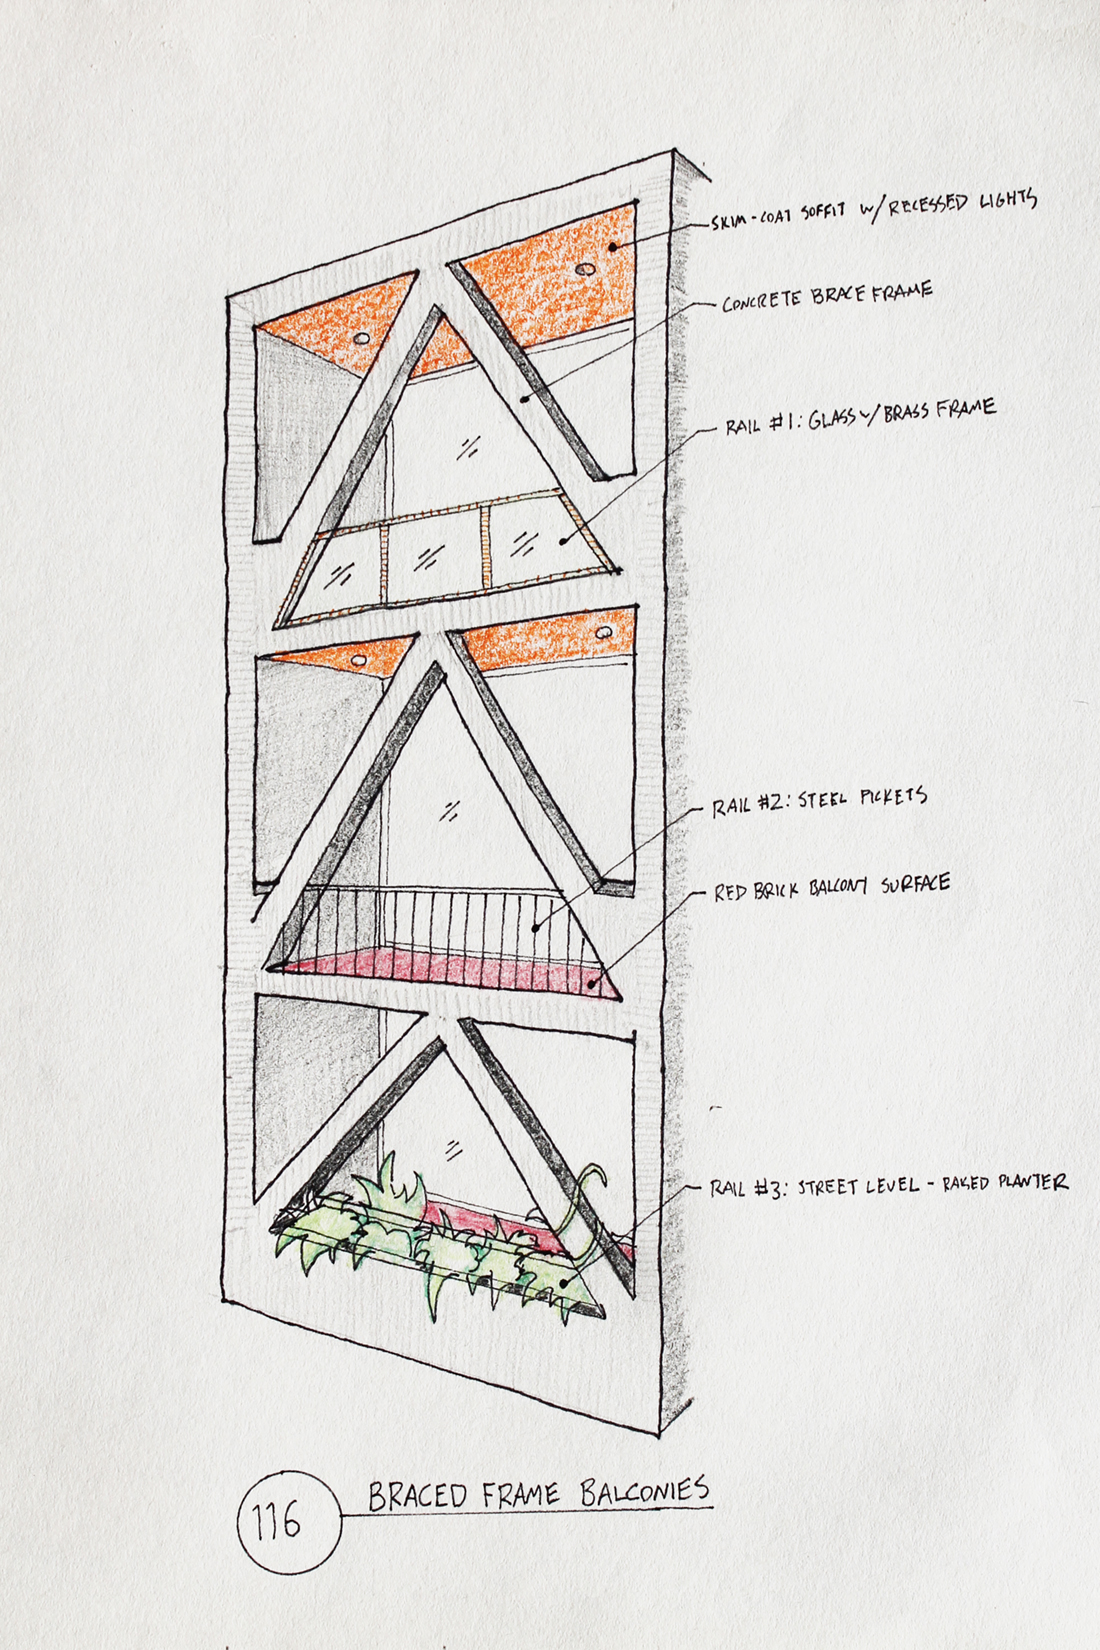 SKIM-COAT SOFFIT W/RECESSED LIGHTS
CONCRETE BRACE FRAME
RAIL #1: GLASS W/BRASS FRAME
RAIL #2: STEEL PICKETS
RED BRICK BALCONY SURFACE
RAIL #3: STREET LEVEL - RAISED PLANTER
116 BRACED FRAME BALCONIES